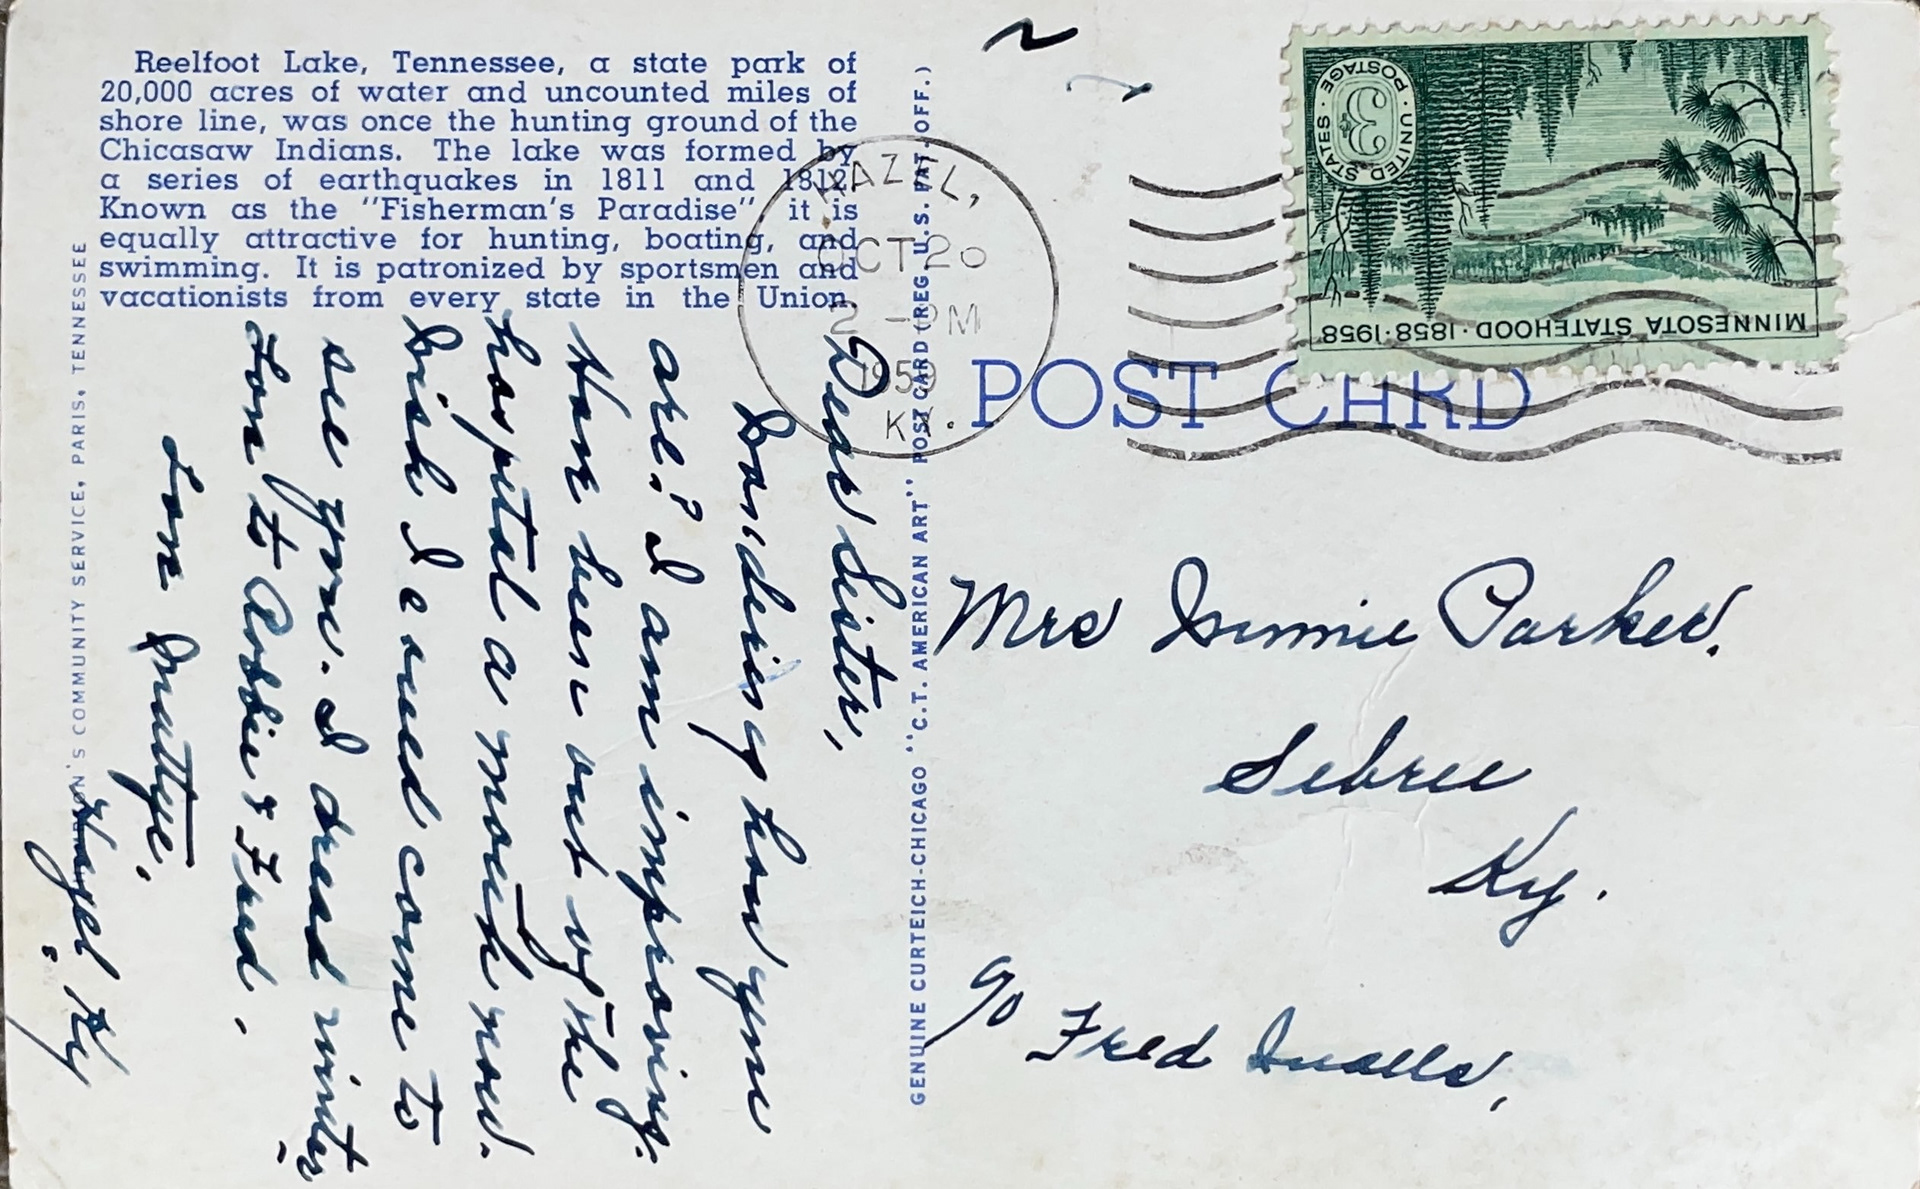 Reelfoot Lake, Tennessee, a state park of
20,000 acres of water and uncounted miles of
shore line, was once the hunting ground of the
Chicasaw Indians. The lake was formed by
a series of earthquakes in 1811 and 1812.
Known as the "Fisherman's Paradise", it is
equally attractive for hunting, boating, and
swimming. It is patronized by sportsmen and
vacationists from every state in the Union.
Dear Sister,
how you
are? I am improving.
Have been out of the
hospital a month now.
Wish I could come to
see you. I dread winter.
Love to & Fred.
Love
Hazel Ky
'S COMMUNITY SERVICE, PARIS, TENNESSEE
GENUINE CURTEICH-CHICAGO "C.T. AMERICAN ART" POST CARD (REG. U.S. PAT. OFF.)
HAZEL,
OCT 20
2 -PM
1959
KY.
POST CARD
UNITED STATES · POSTAGE
3
MINNESOTA STATEHOOD · 1858 · 1958
Mrs Parker.
Sebree
Ky.
c/o Fred